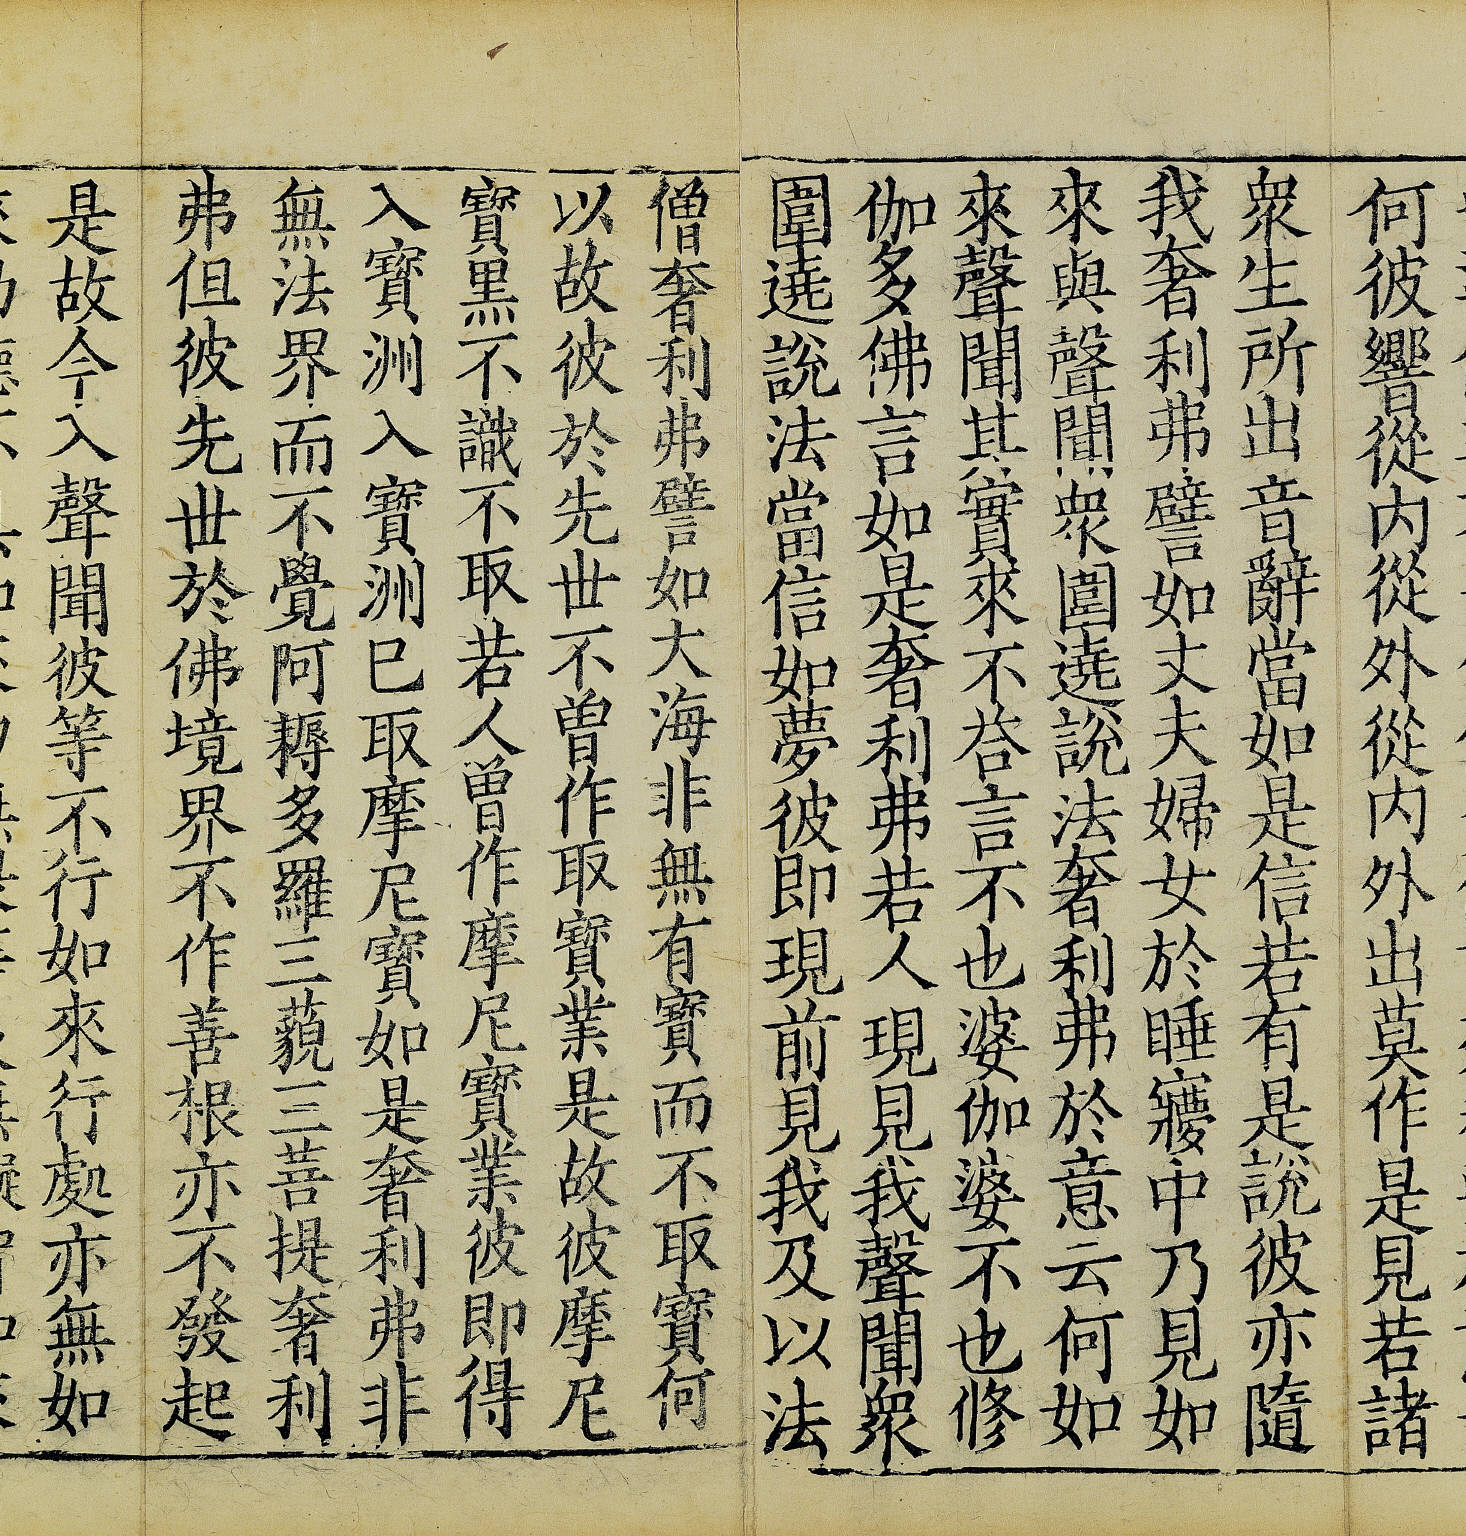 何彼響從内從外從内外出莫作是見若諸
衆生所出音辭當如是信若有是說彼亦隨
我奢利弗譬如丈夫婦女於睡寱中乃見如
來與聲聞衆圍遶說法奢利弗於意云何如
來聲聞其實來不荅言不也婆伽婆不也修
伽多佛言如是奢利弗若人現見我聲聞衆
圍遶說法當信如夢彼即現前見我及以法
僧奢利弗譬如大海非無有寶而不取寶何
以故彼於先世不曾作取寶業是故彼摩尼
寶黒不識不取若人曾作摩尼寶業彼即得
入寶洲入寶洲已取摩尼寶如是奢利弗非
無法界而不覺阿耨多羅三藐三菩提奢利
弗但彼先世於佛境界不作善根亦不發起
是故今入聲聞彼等不行如來行處亦無如